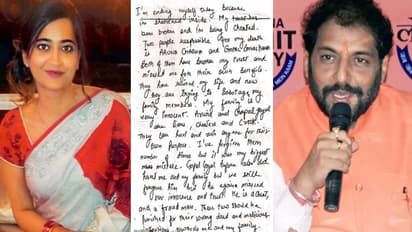 I'm ending myself today because
in shattered inside. My trust has
been broken and I'm being cheated.
Two people responsible for my death
is Aruna Chadha and Gopal Goyal Kanda
Both of them have broken my trust and
misused me for their own benefits.
They have ruined my life and now
they are trying to sabotage my
family members. My family is
very innocent. Aruna and Gopal Goyal
are liars, cheaters and
They can hurt and ruin anyone for their
own purpose. I've forgiven them
number of times but it was my biggest
mistake. Gopal Goyal also
me and my family but we still
forgave him but he again misused
our innocence and trust. He is a cheat,
and a fraud man. These two should be
punished for their wrong deed and malicious
intentions towards me and my family.
NA
IT
Y